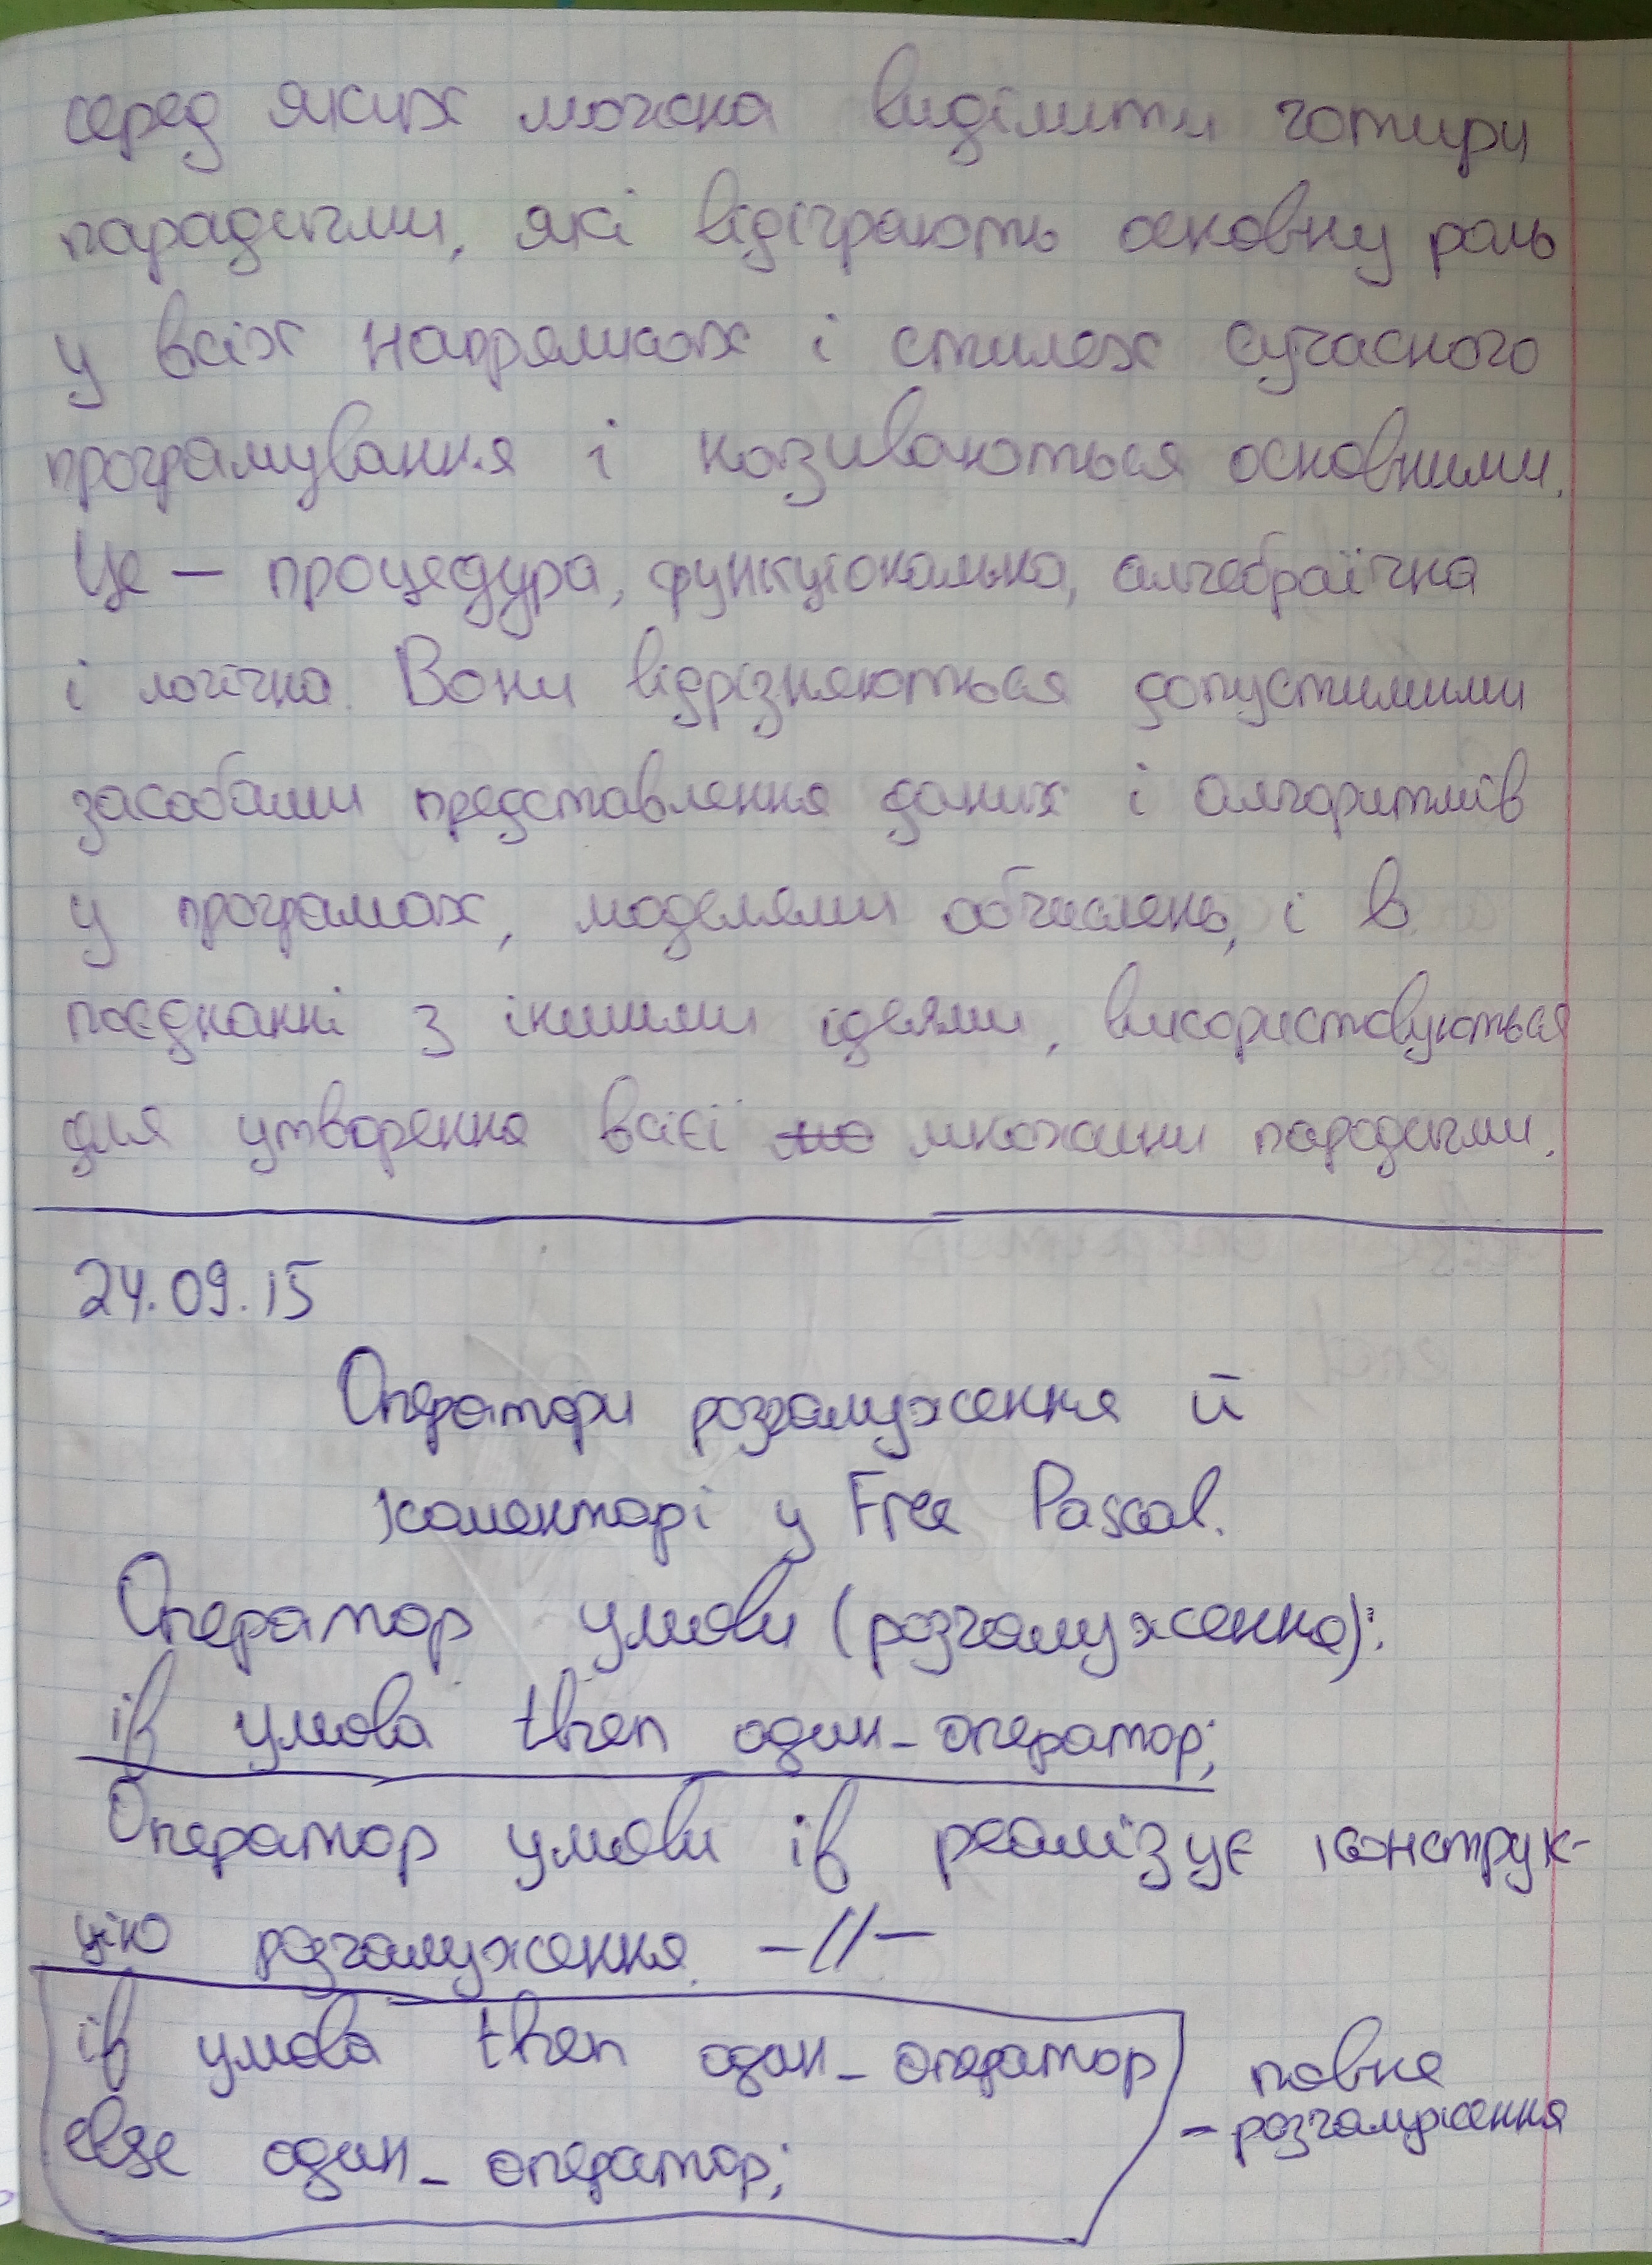 серед яких можна виділити чотири
парадигми, які відіграють основну роль
у всіх напрямках і стилях сучасного
програмування і називаються основними.
Це — процедура, функціональна, алгебраїчна
і логічна. Вони відрізняються допустимими
засобами представлення даних і алгоритмів
у програмах, моделями обчислень, і в
поєднанні з іншими ідеями, використовуються
для утворення всієї множини парадигми.
24.09.15
Оператори розгалуження й
коментарі у Free Pascal.
Оператор умови (розгалуження):
if умова then один_оператор;
Оператор умови if реалізує конструк-
цію розгалуження. —//—
if умова then один_оператор
else один_оператор;
повне
- розгалуження